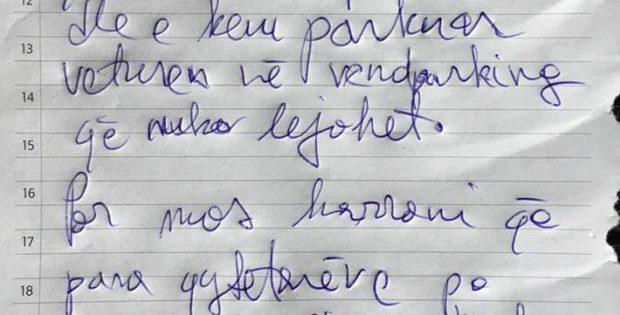 e kem parkuar
veturen në vendparking
që nuk lejohet.
Por mos harroni që
para qytetarëve po